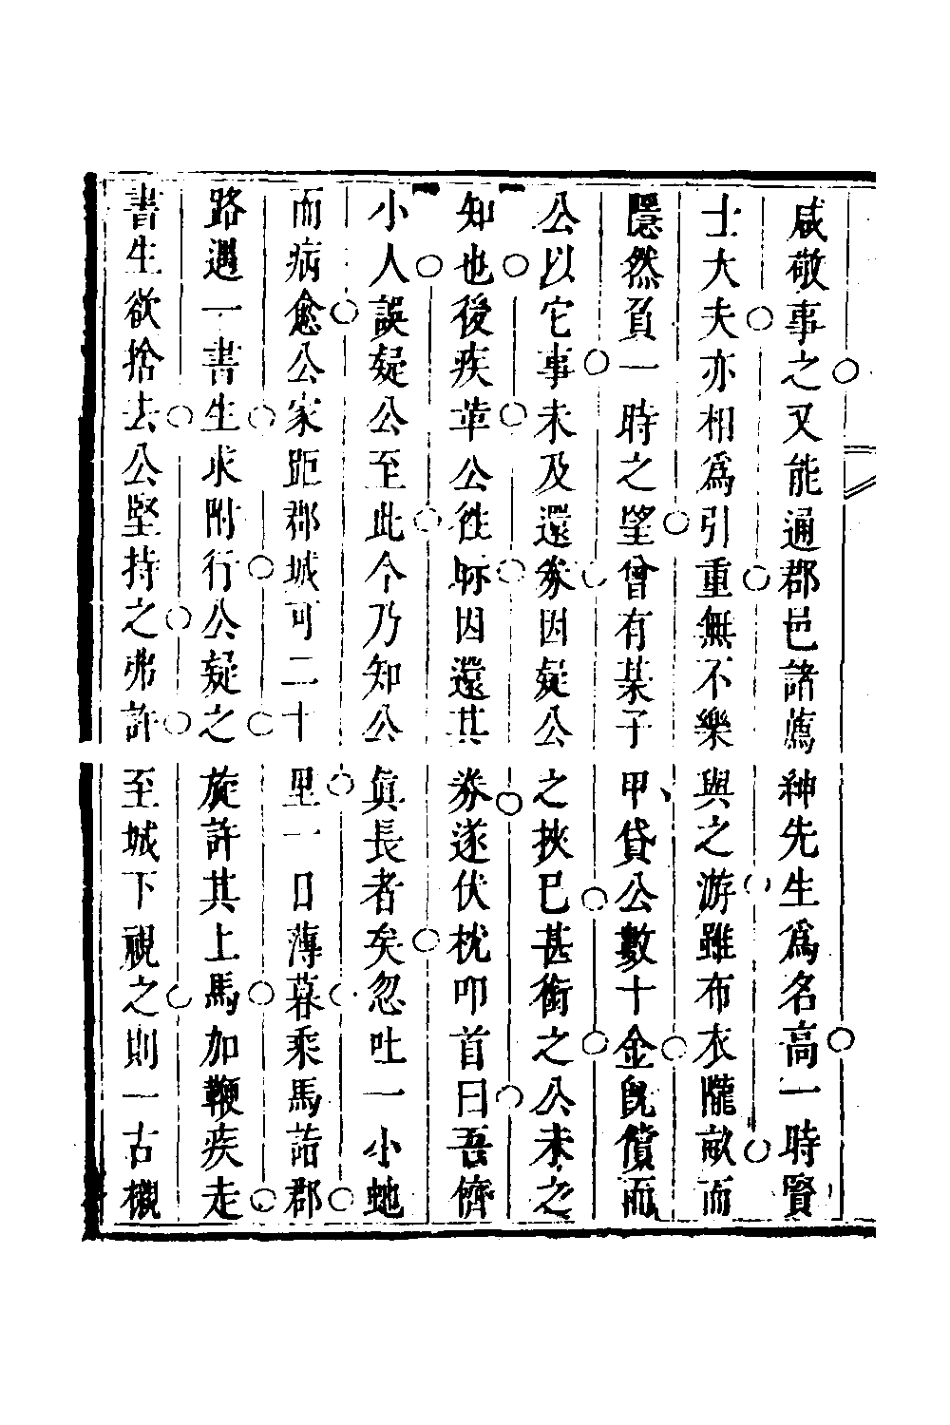 咸敬事之又能通郡邑諸薦紳先生爲名高一時賢
士大夫亦相爲引重無不樂與之游雖布衣隴畝而
隱然負一時之望曾有某子甲貸公數十金旣償而
公以它事未及還券因疑公之挾已甚銜之公未之
知也後疾革公徃眎因還其券遂伏枕叩首曰吾儕
小人誤疑公至此今乃知公眞長者矣忽吐一小虵
而病愈公家距郡城可二十里一日薄暮乘馬詣郡
路遇一書生求附行公疑之旋許其上馬加鞭疾走
書生欲捨去公堅持之弗許至城下視之則一古櫬